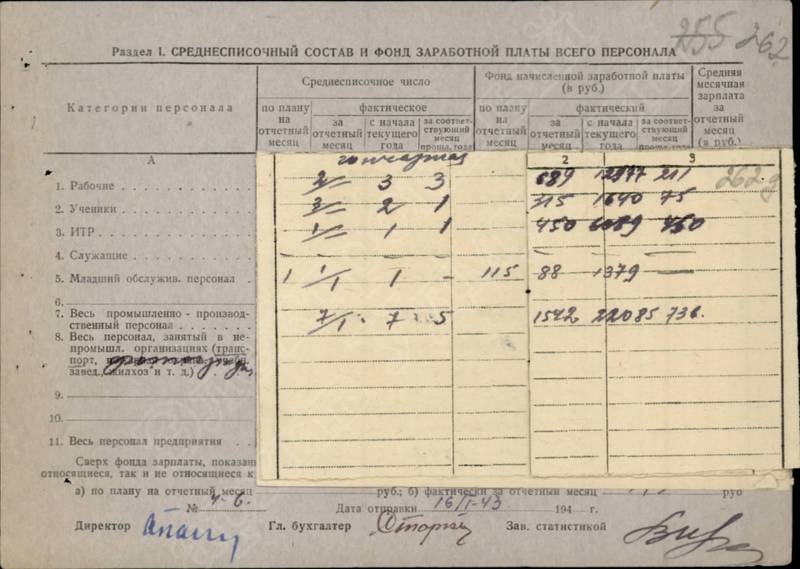 255 262
Раздел I. СРЕДНЕСПИСОЧНЫЙ СОСТАВ И ФОНД ЗАРАБОТНОЙ ПЛАТЫ ВСЕГО ПЕРСОНАЛА
Категории персонала
Среднесписочное число
Фонд начисленной заработной платы (в руб.)
Средняя месячная зарплата за отчетный месяц (в руб.)
по плану на отчетный месяц
фактическое
по плану на отчетный месяц
фактический
за отчетный месяц
с начала текущего года
за соответствующий месяц прош. года
за отчетный месяц
с начала текущего года
за соответствующий месяц прош. года
А
2 3
1. Рабочие 2/- 3 3 689 12977 211
2. Ученики 3/- 2 1 315 1640 75
3. ИТР 1/- 1 1 450 6089 450
4. Служащие - - - - - -
5. Младший обслужив. персонал 1 1/1 1 - 115 88 1379 -
6.
7. Весь промышленно-производ-
ственный персонал 7/1 7 5 1542 22085 736.
8. Весь персонал, занятый в не-
промышл. организациях (транс-
порт,
завед., жилхоз и т. д.)
9.
10.
11. Весь персонал предприятия
Сверх фонда зарплаты, показан
относящиеся, так и не относящиеся к
а) по плану на отчетный месяц руб.; б) фактически за отчетный месяц руб
№ 4-6. Дата отправки 16/I-43 194 г.
Директор Гл. бухгалтер Зав. статистикой